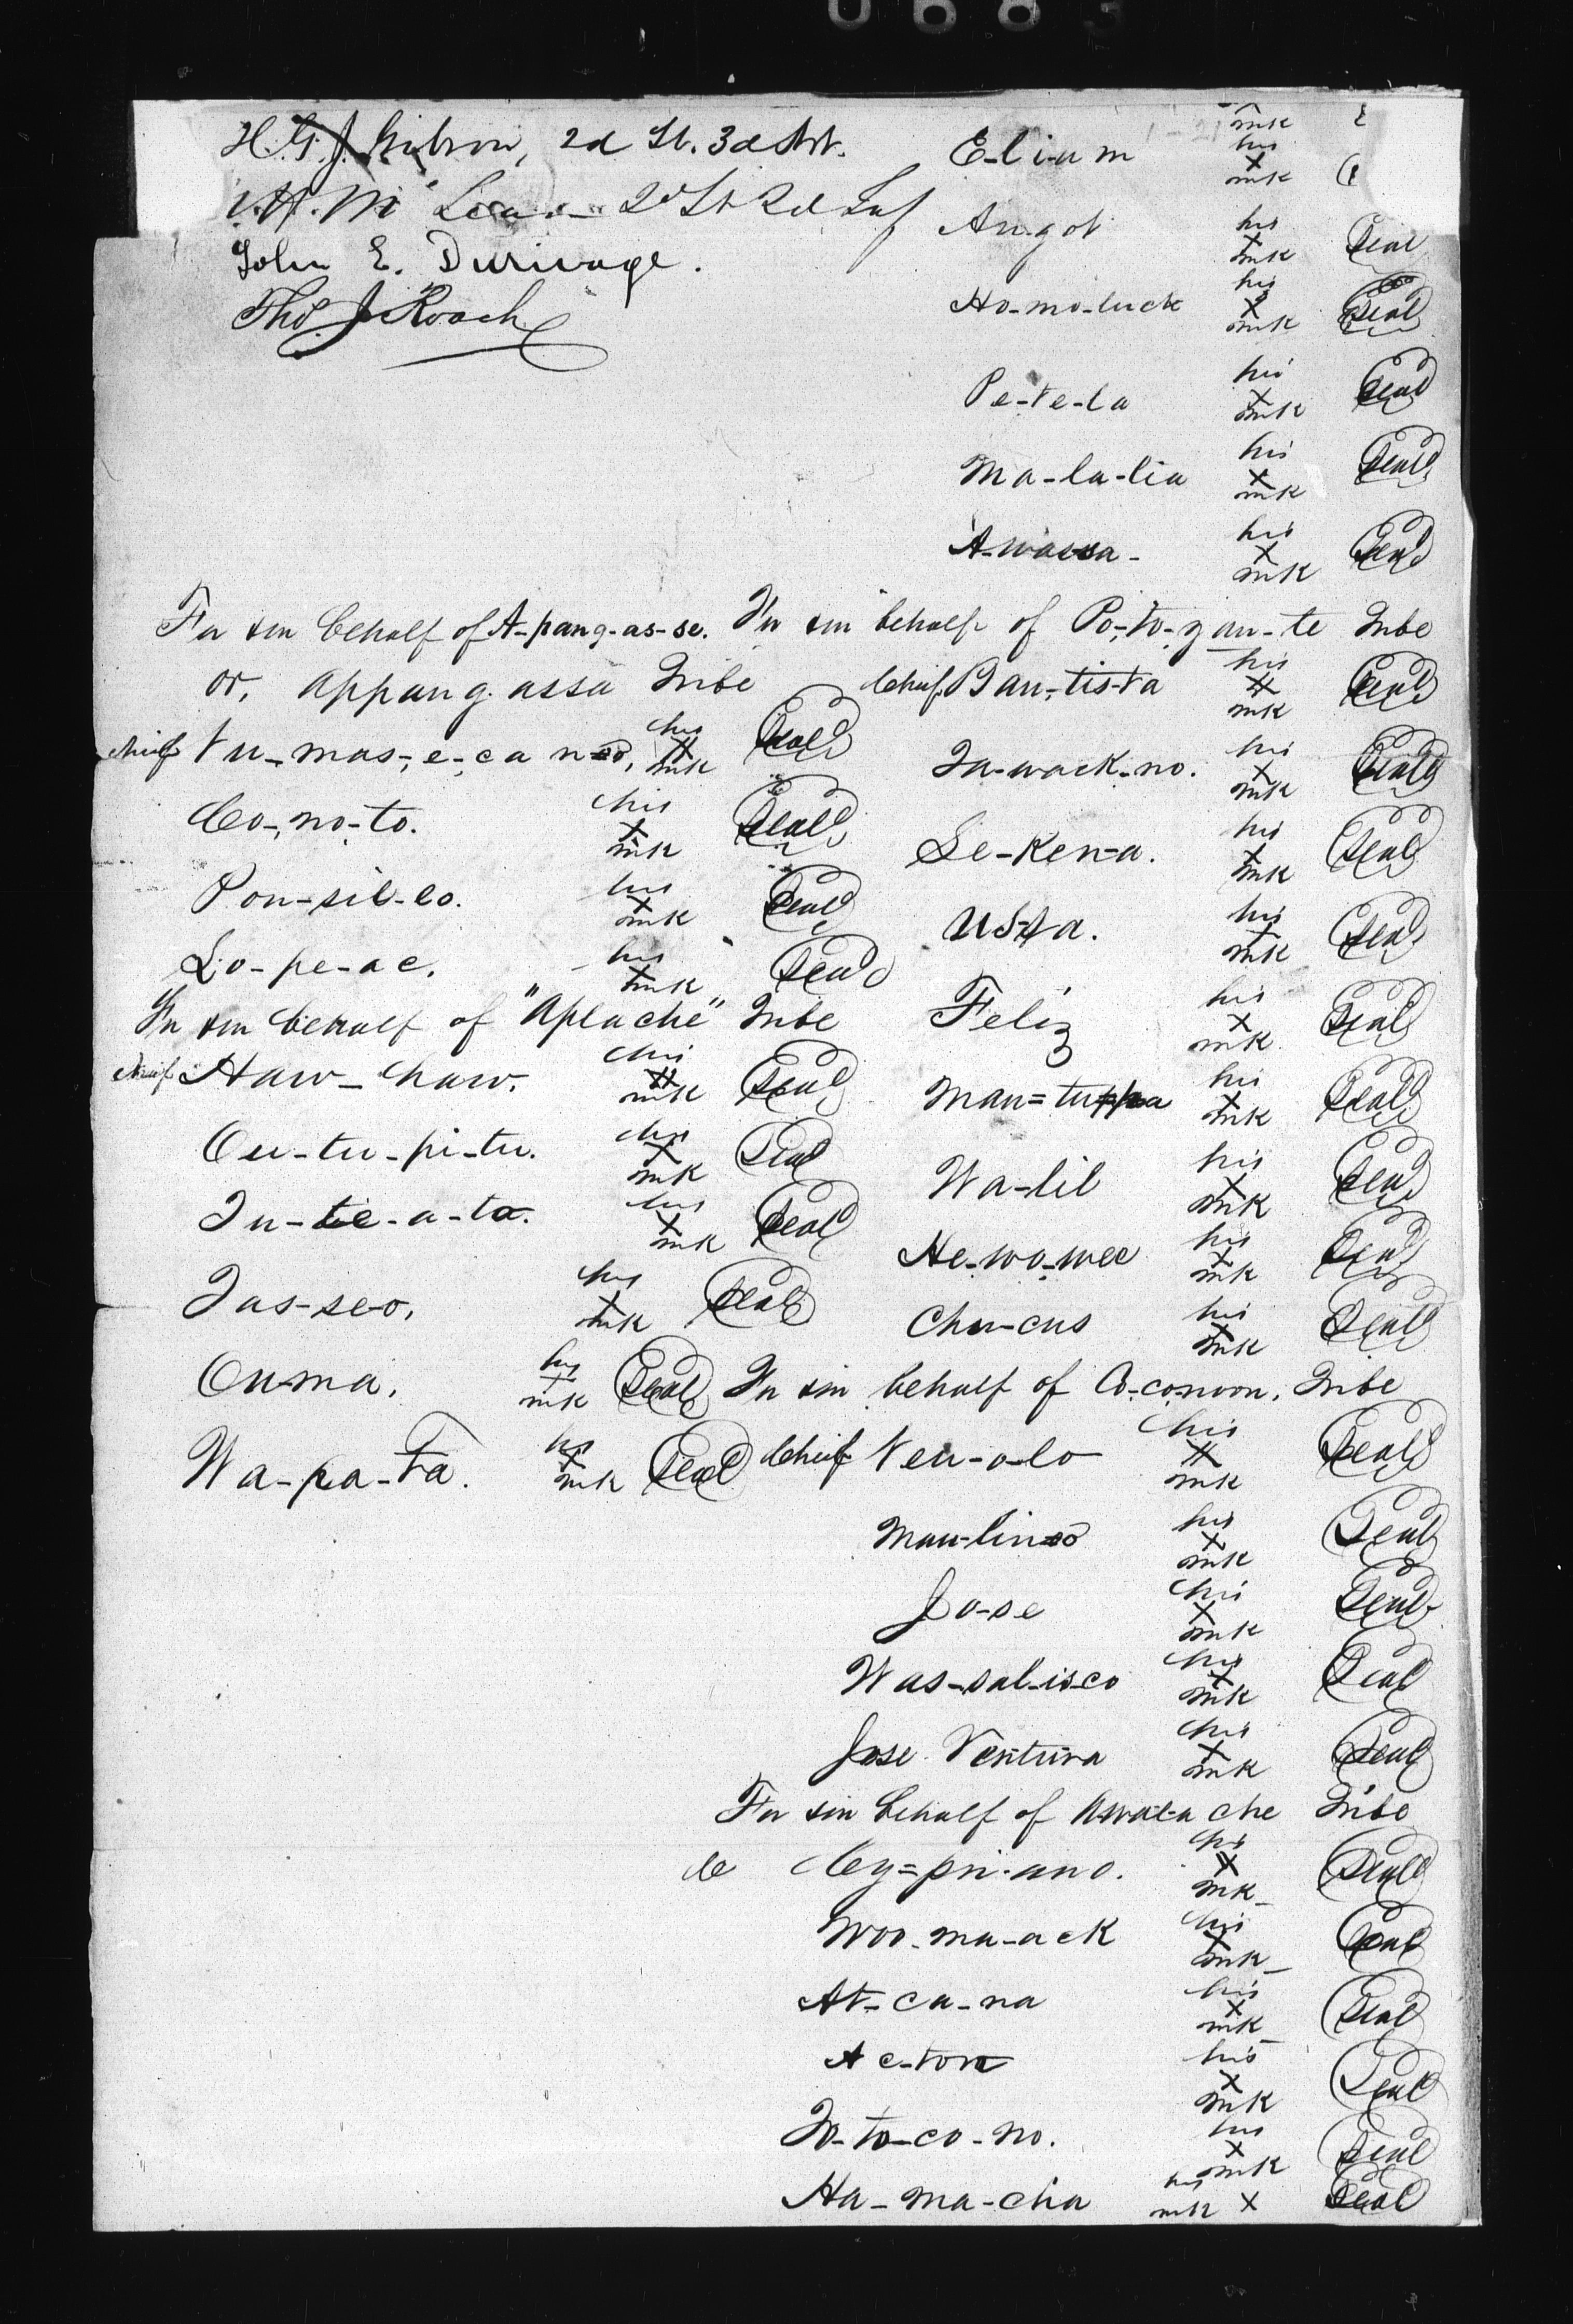 0683
H. G. J. Gibson, 2d Lt. 3d Art.
N. H. Mc Lean 2d Lt 2d Inf
John E. Durivage.
Tho. J. Roach
mk
E-li-um his X mk
An-got his X mk Seal
Ho-mo-luck his X mk Seal
Pe-te-la his X mk Seal
Ma-la-lia his X mk Seal
A-wassa- his X mk Seal
Fr & in behalf of A-pang-as-se.
or, Appang assa Tribe
Chief Nu-mas-e-ca no, his X mk Seal
Co-no-to. his X mk Seal
Pon-sil-lo. his X mk Seal
Lo-pe-ac. his X mk Seal
Fr & in behalf of "Aplache" Tribe
Chief Haw-haw. his X mk Seal
Ou-tu-pi-tu. his X mk Seal
In-te-a-ta. his X mk Seal
Tas-se-o. his X mk Seal
Ou-ma. his X mk Seal
Wa-pa-Ta. his X mk Seal
Fr & in behalf of Po-to-yan-te Tribe
Chief Bau-tis-ta his X mk Seal
La-wack-no. his X mk Seal
Se-ken-a. his X mk Seal
Us-ta. his X mk Seal
Feliz his X mk Seal
Man=tuppa his X mk Seal
Wa-lil his X mk Seal
He-wo-wee his X mk Seal
Chu-cus his X mk Seal
Fr & in behalf of Co-co-noon, Tribe
Chief Nen-o-lo his X mk Seal
Mau-lin-o his X mk Seal
Jo-se his X mk Seal
Was-sal-is-co his X mk Seal
Jose Ventura his X mk Seal
Fr & in behalf of Awal-a che Tribe
Cy=pri-ano. his X mk Seal
Woo-ma-ack his X mk Seal
At-ca-na his X mk Seal
Ac-ton his X mk Seal
To-to-co-no. his X mk Seal
Ha-ma-cha his mk X Seal